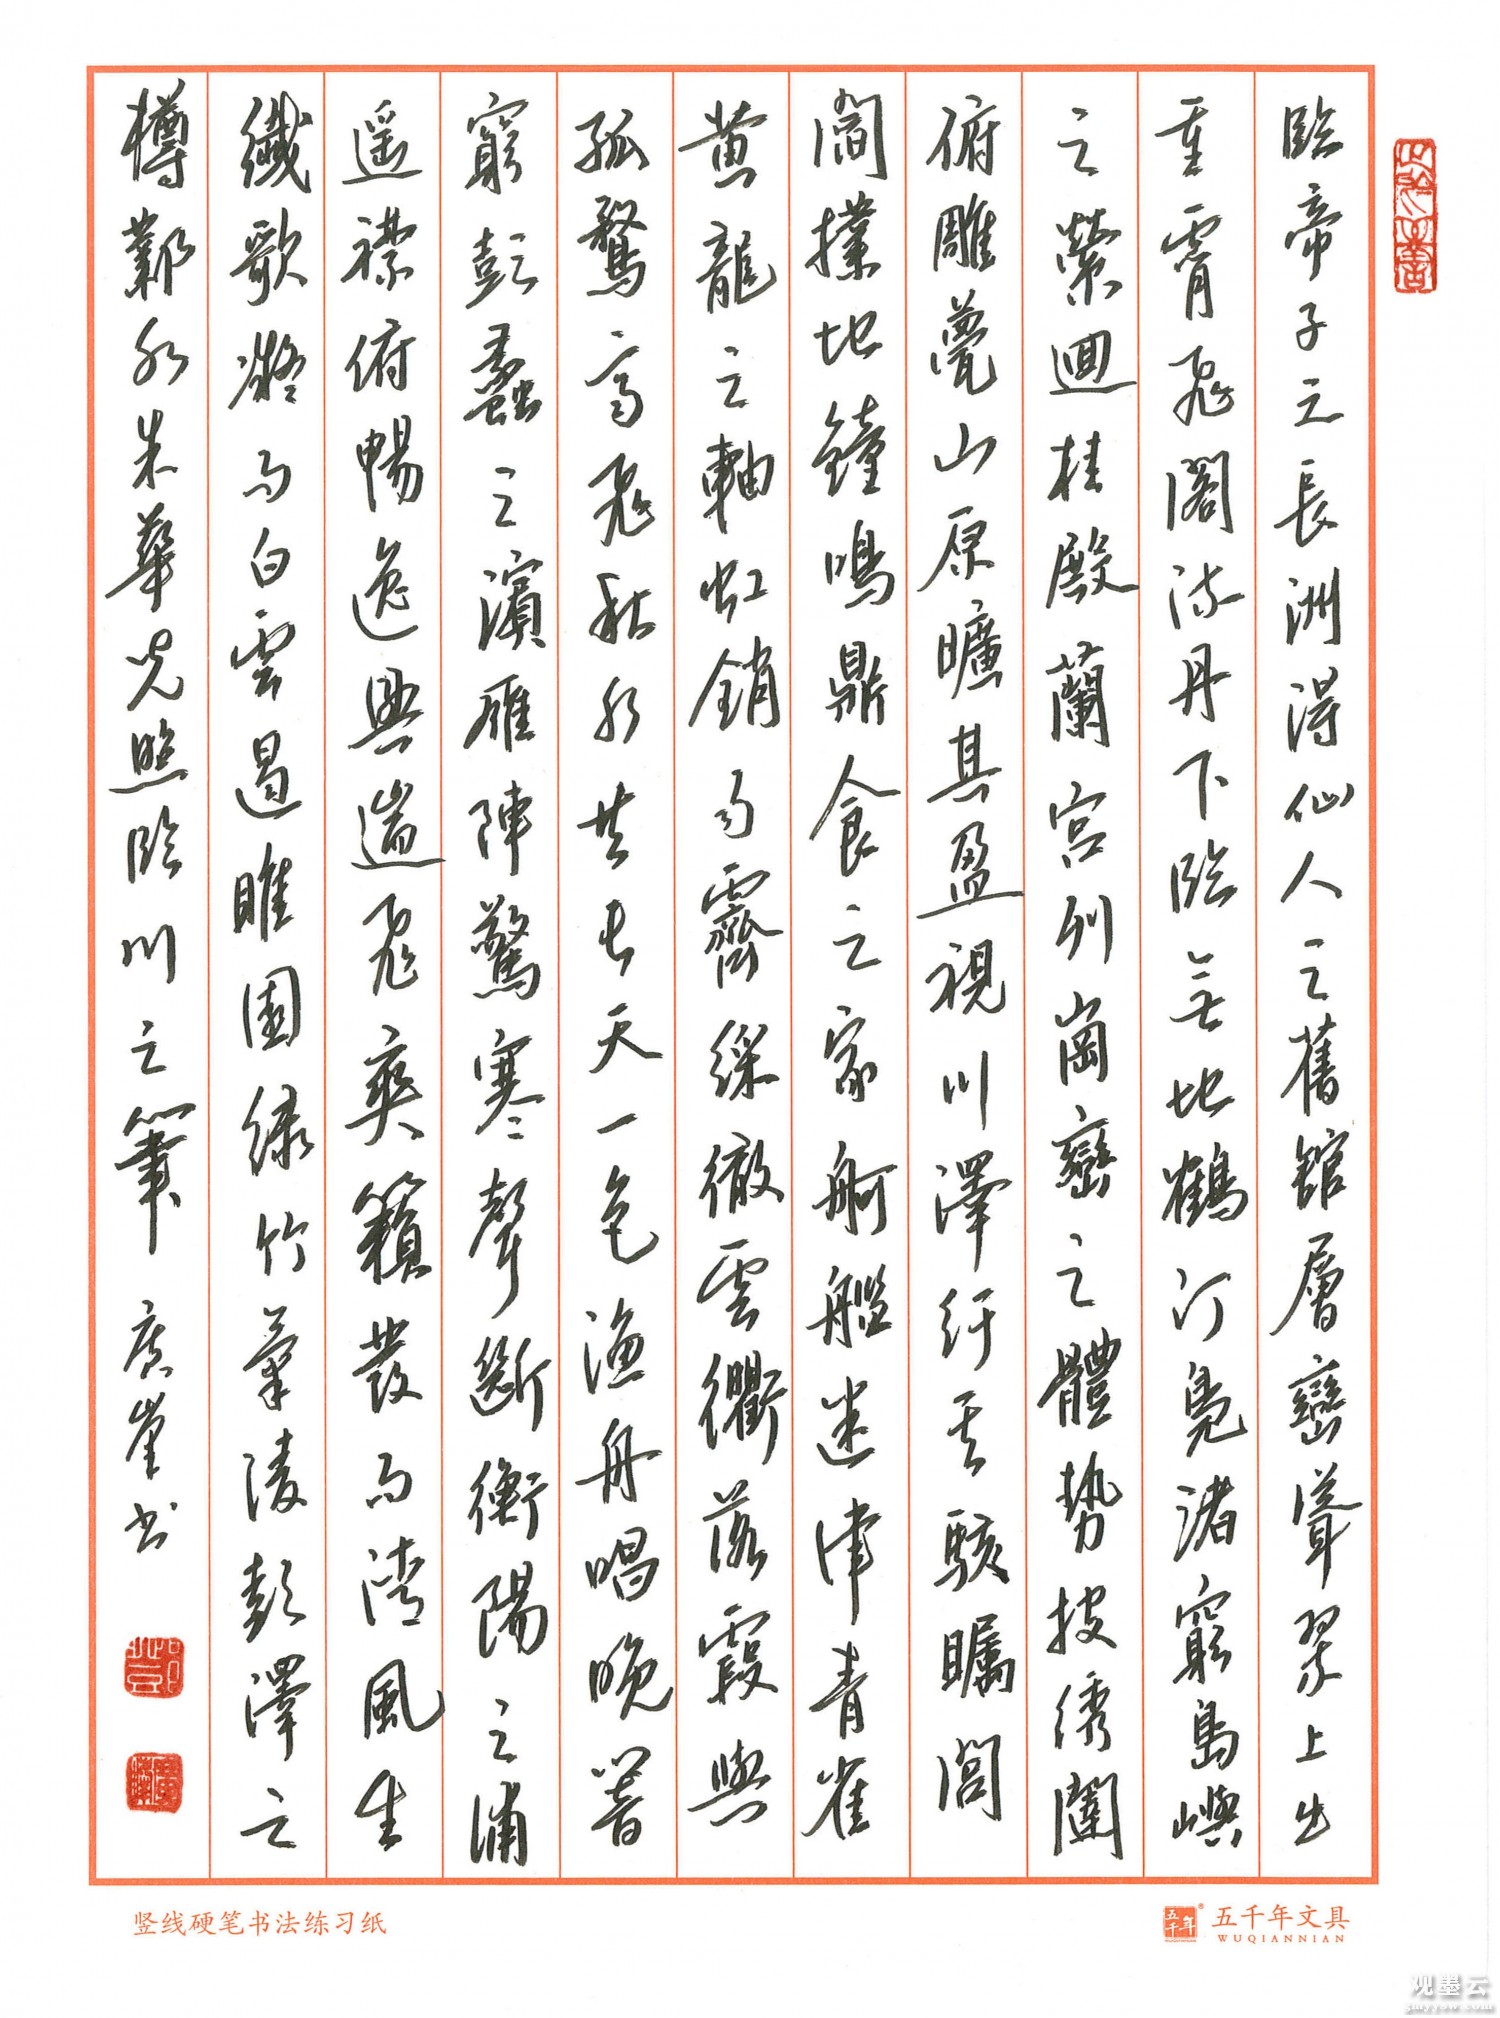 臨帝子之長洲得仙人之舊館層巒聳翠上出
重霄飛閣流丹下臨無地鶴汀鳧渚窮島嶼
之縈迴桂殿蘭宮列崗巒之體勢披绣闥
俯雕甍山原曠其盈視川澤紆其駭矚閭
閻撲地鐘鳴鼎食之家舸艦迷津青雀
黄龍之軸虹銷雨霽綵徹雲衢落霞與
孤鶩高飛秋水共長天一色漁舟唱晚響
窮彭蠡之濱雁陣驚寒聲斷衡陽之浦
遥襟俯暢逸興遄飛爽籟發而清風生
纖歌凝而白雲遏睢園绿竹氣凌彭澤之
樽鄴水朱華光照臨川之筆 廣崖书
竖线硬笔书法练习纸
五千年
五千年文具
WUQIANNIAN
观墨云
gmyyow.com